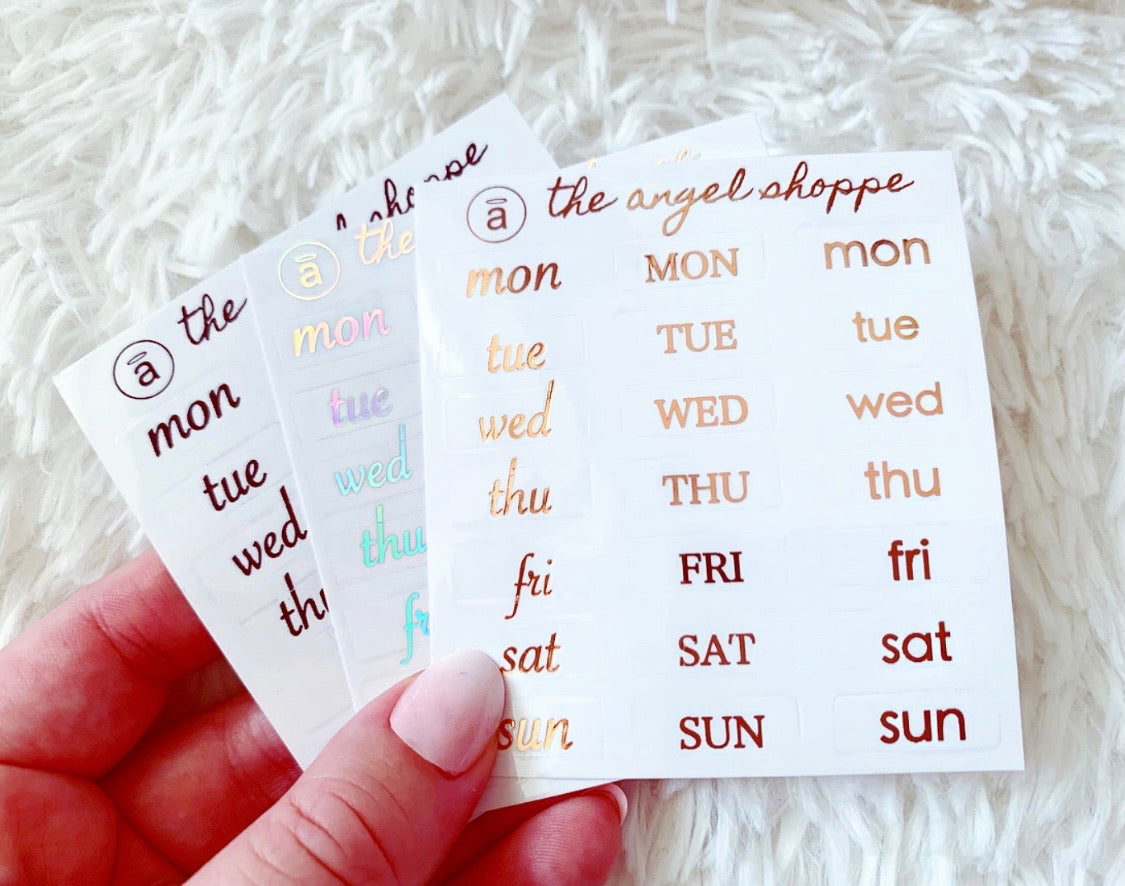 shoppe
a the
mon
tue
wed
a the
mon
tue
wed
thu
a the angel shoppe
mon MON mon
tue TUE tue
wed WED wed
thu THU thu
fri FRI fri
sat SAT sat
sun SUN sun